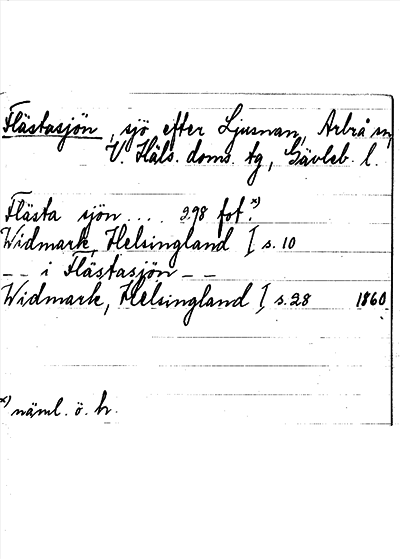 Flästasjön, sjö efter Ljusnan, Arbrå sn,
V. Häls. doms. tg, Gävleb. l.
Flästa sjön.... 298 fot.x)
Widmark, Helsingland I s. 10
-- i Flästasjön --
Widmark, Helsingland I s. 28 1860
x) näml. ö. h.